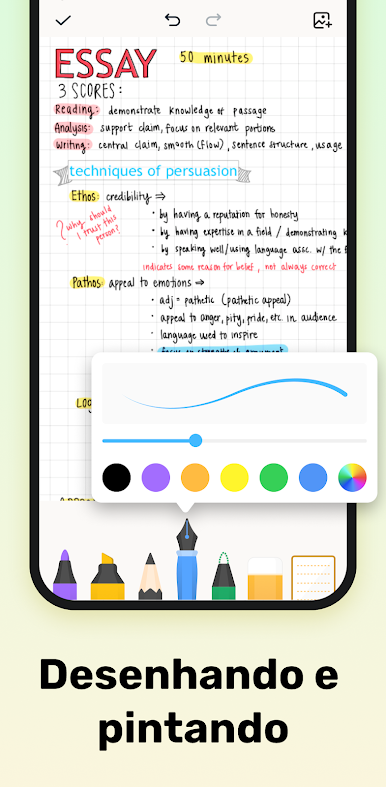 ESSAY 50 minutes
3 SCORES:
Reading: demonstrate knowledge of passage
Analysis: support claim, focus on relevant portions
Writing: central claim, smooth (flow), sentence structure, usage
techniques of persuasion
Ethos: credibility ⇒
? why should
I trust this
person?
• by having a reputation for honesty
• by having expertise in a field / demonstrating k
• by speaking well/using language assc. w/ the f
indicates some reason for belief, not always correct
Pathos: appeal to emotions ⇒
• adj = pathetic (pathetic appeal)
• appeal to anger, pity, pride, etc. in audience
• language used to inspire
Desenhando e
pintando